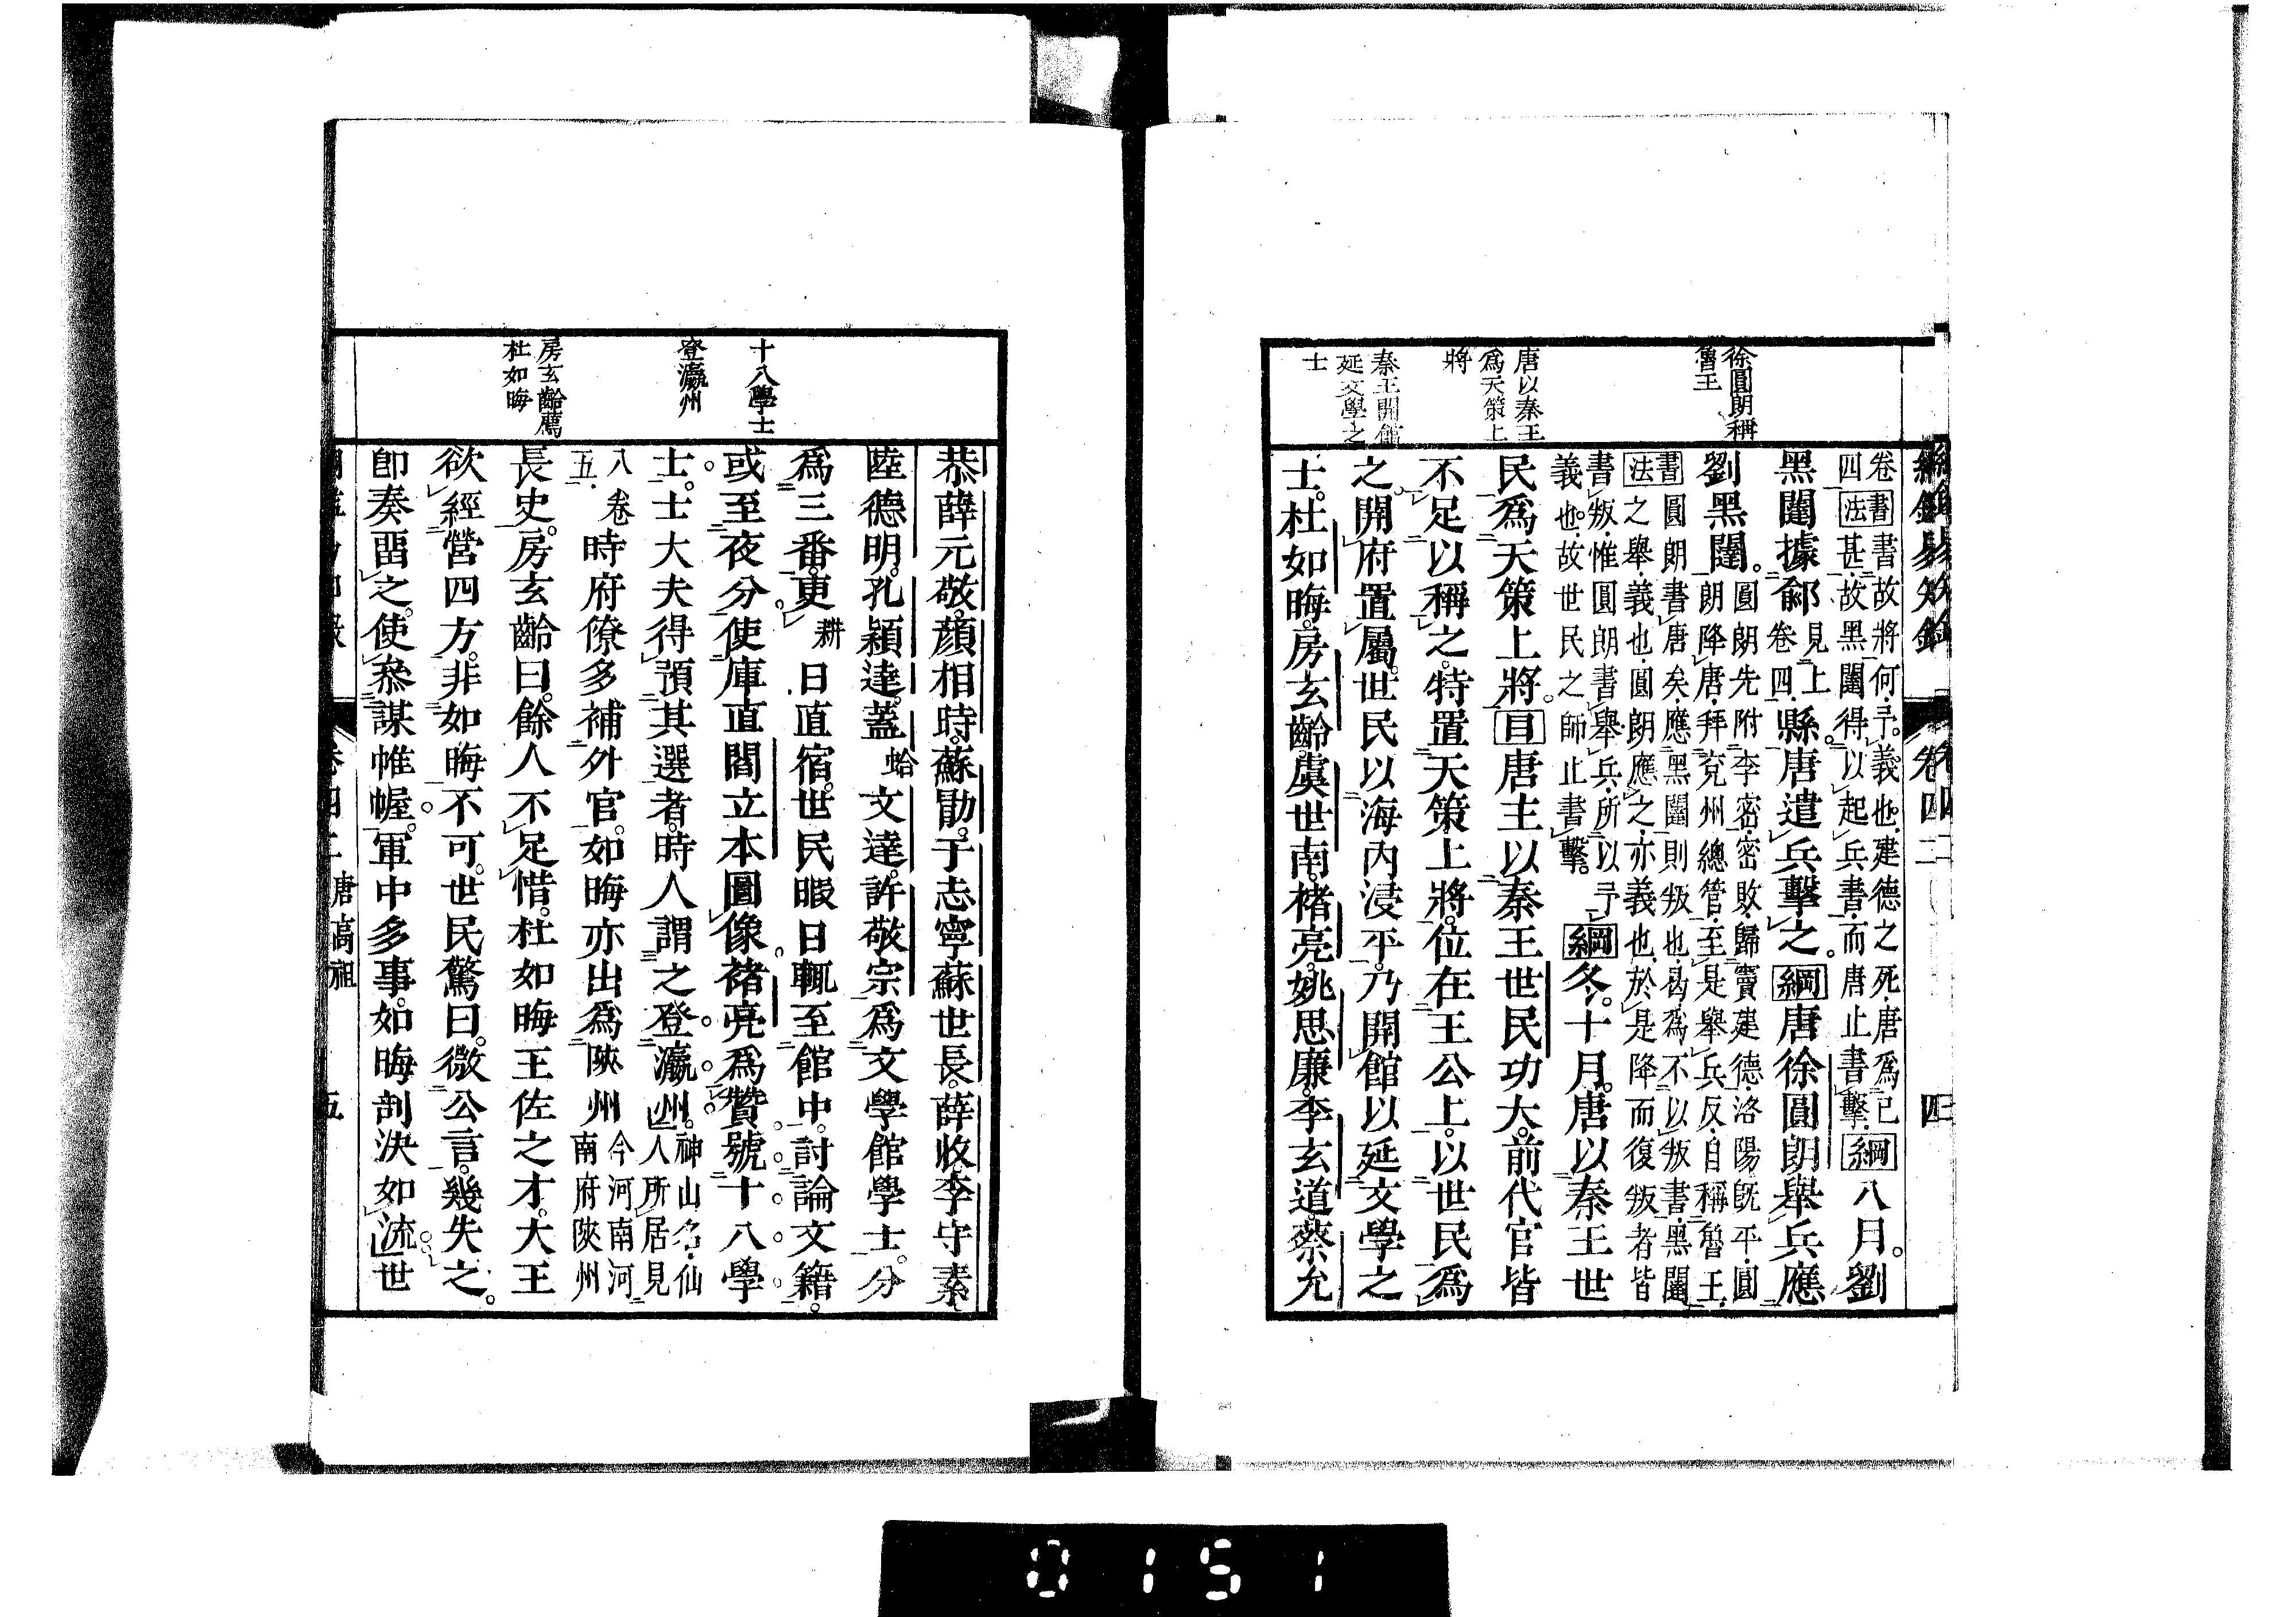 綱鑑易知錄 卷四二 四
徐圓朗稱
魯王
唐以秦王
爲天策上
將
秦王開館
延文學之
士
卷書書故將何予義也建德之死唐爲已
四法甚故黑闥得以起兵書而唐止書擊綱八月。劉
黑闥據鄃見上卷四縣。唐遣兵擊之。綱唐徐圓朗舉兵應
劉黑闥。圓朗先附李密密敗歸竇建德洛陽既平圓
朗降唐拜兗州總管至是舉兵反自稱魯王
書圓朗書唐矣應黑闥則叛也曷爲不以叛書黑闥
法之舉義也圓朗應之亦義也於是降而復叛者皆
書叛惟圓朗書舉兵所以予
義也故世民之師止書擊。綱冬。十月。唐以秦王世
民爲天策上將。目唐主以秦王世民功大。前代官皆
不足以稱之。特置天策上將。位在王公上。以世民爲
之。開府置屬。世民以海內浸平。乃開館以延文學之
士。杜如晦。房玄齡。虞世南。褚亮。姚思廉。李玄道。蔡允
十八學士
登瀛州
房玄齡薦
杜如晦
恭。薛元敬。顏相時。蘇勖。于志寧。蘇世長。薛收。李守素。
陸德明。孔穎達。蓋蛤文達。許敬宗。爲文學館學士。分
爲三番。更耕日直宿。世民暇日輒至館中。討論文籍。
或至夜分。使庫直閻立本圖像。褚亮爲贊。號十八學
士。士大夫得預其選者。時人謂之登瀛州。神山名仙
人所居見
八卷
五時府僚多補外官。如晦亦出爲陝州今河南河
南府陝州
長史。房玄齡曰。餘人不足惜。杜如晦王佐之才。大王
欲經營四方。非如晦不可。世民驚曰。微公言。幾失之。
卽奏畱之。使叅謀帷幄。軍中多事。如晦剖決如流。世
卷四二 唐高祖 五
0151